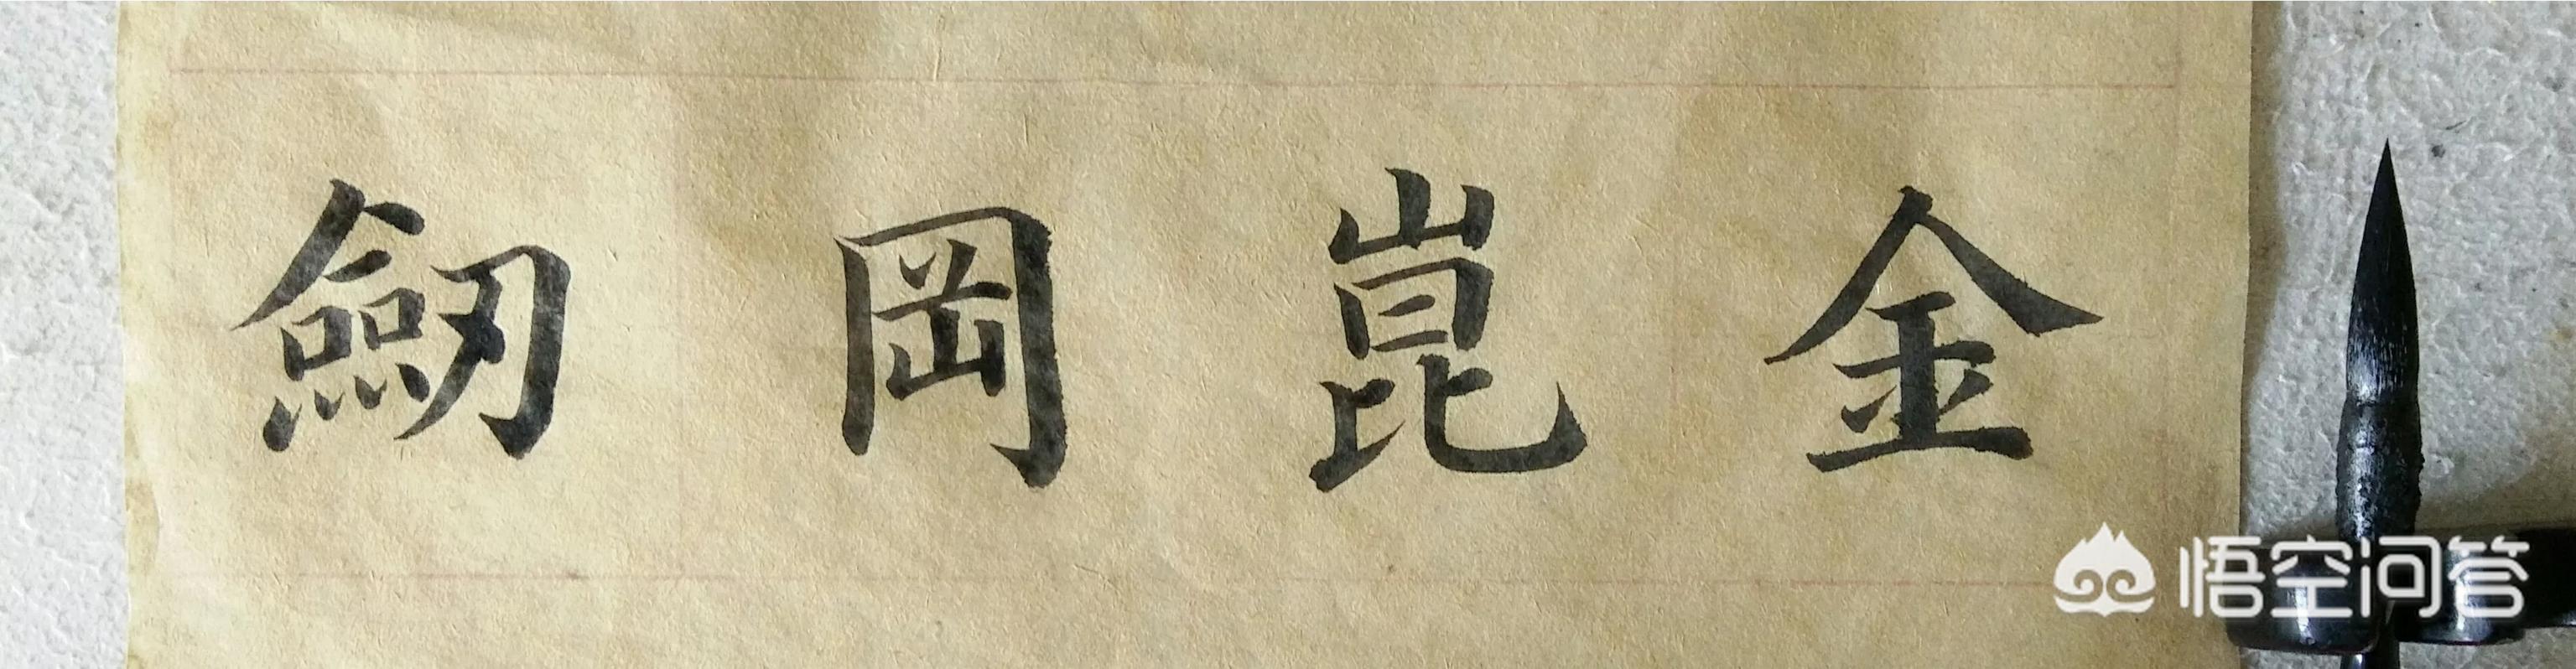 金崑岡劒
悟空问答